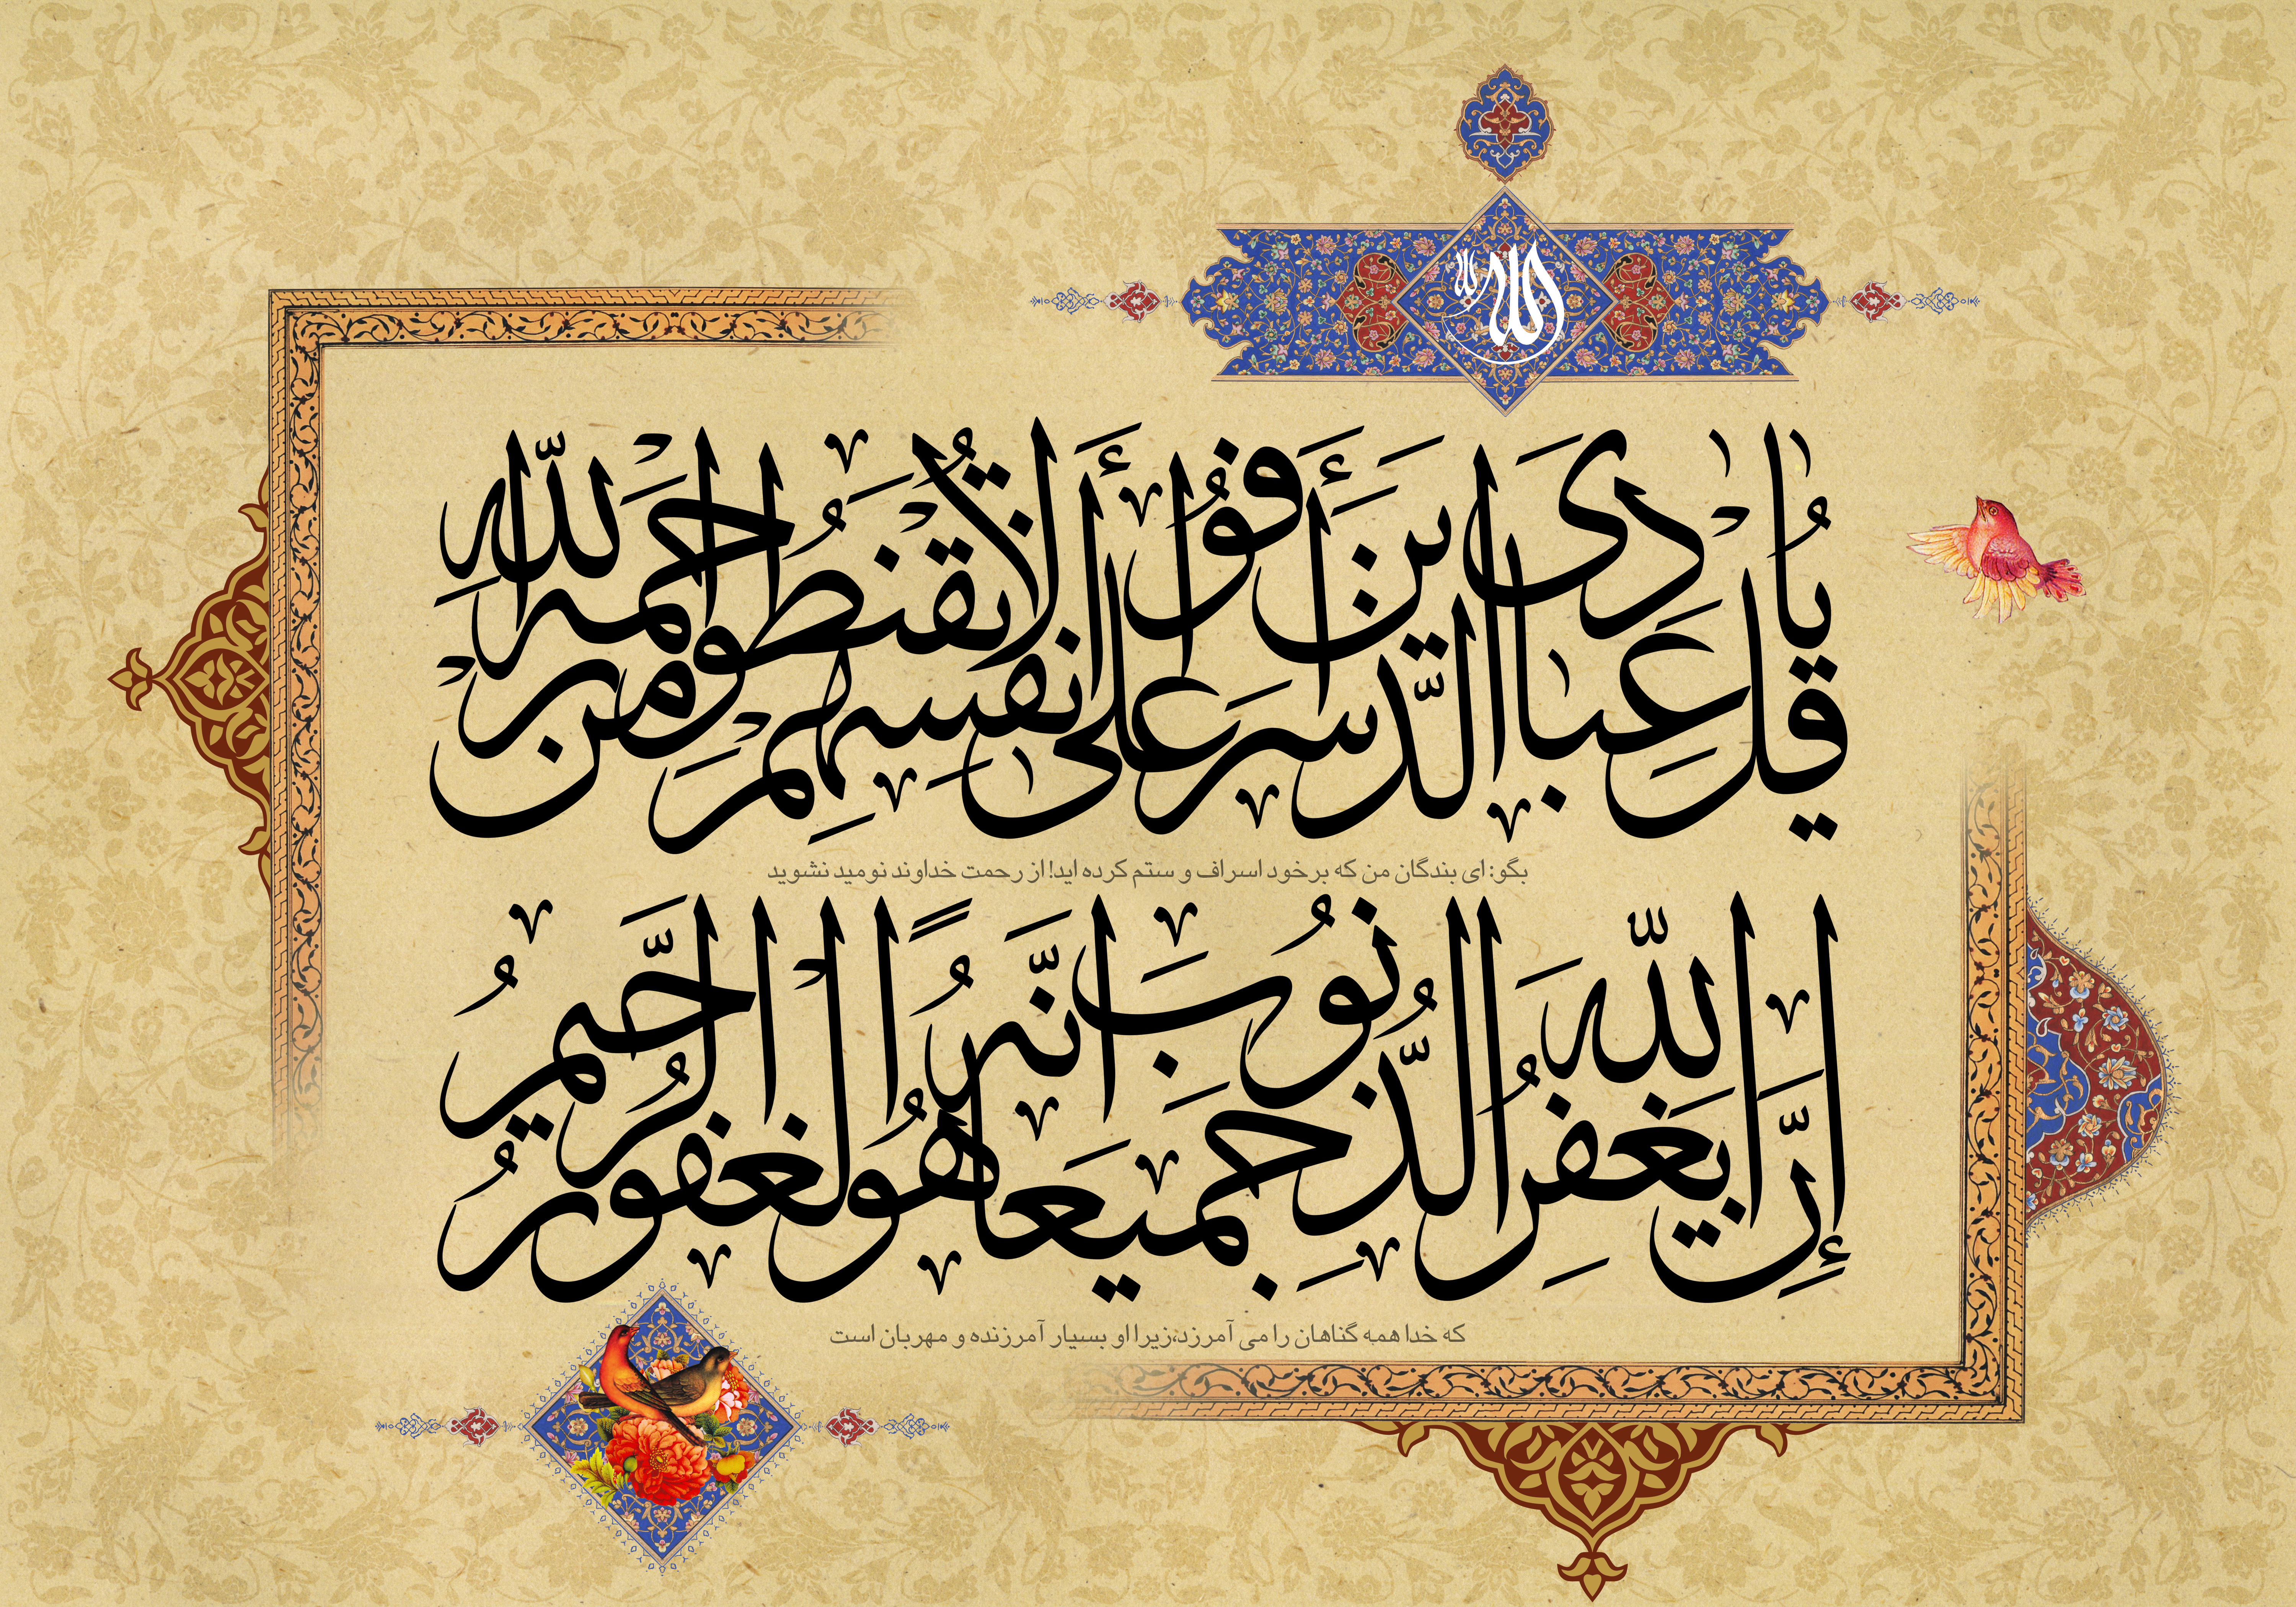 الله لله
قُلْ يَا عِبَادِىَ الَّذينَ أَسْرَفُوا عَلى أَنفُسِهِمْ لَا تَقْنَطُوا مِن رَّحْمَةِ اللَّهِ
بگو: ای بندگان من که برخود اسراف و ستم کرده اید! از رحمت خداوند نومید نشوید
إِنَّ اللَّهَ يَغْفِرُ الذُّنُوبَ جَمِيعًا إِنَّهُ هُوَ الْغَفُورُ الرَّحِيمُ
که خدا همه گناهان را می آمرزد،زیرا او بسیار آمرزنده و مهربان است